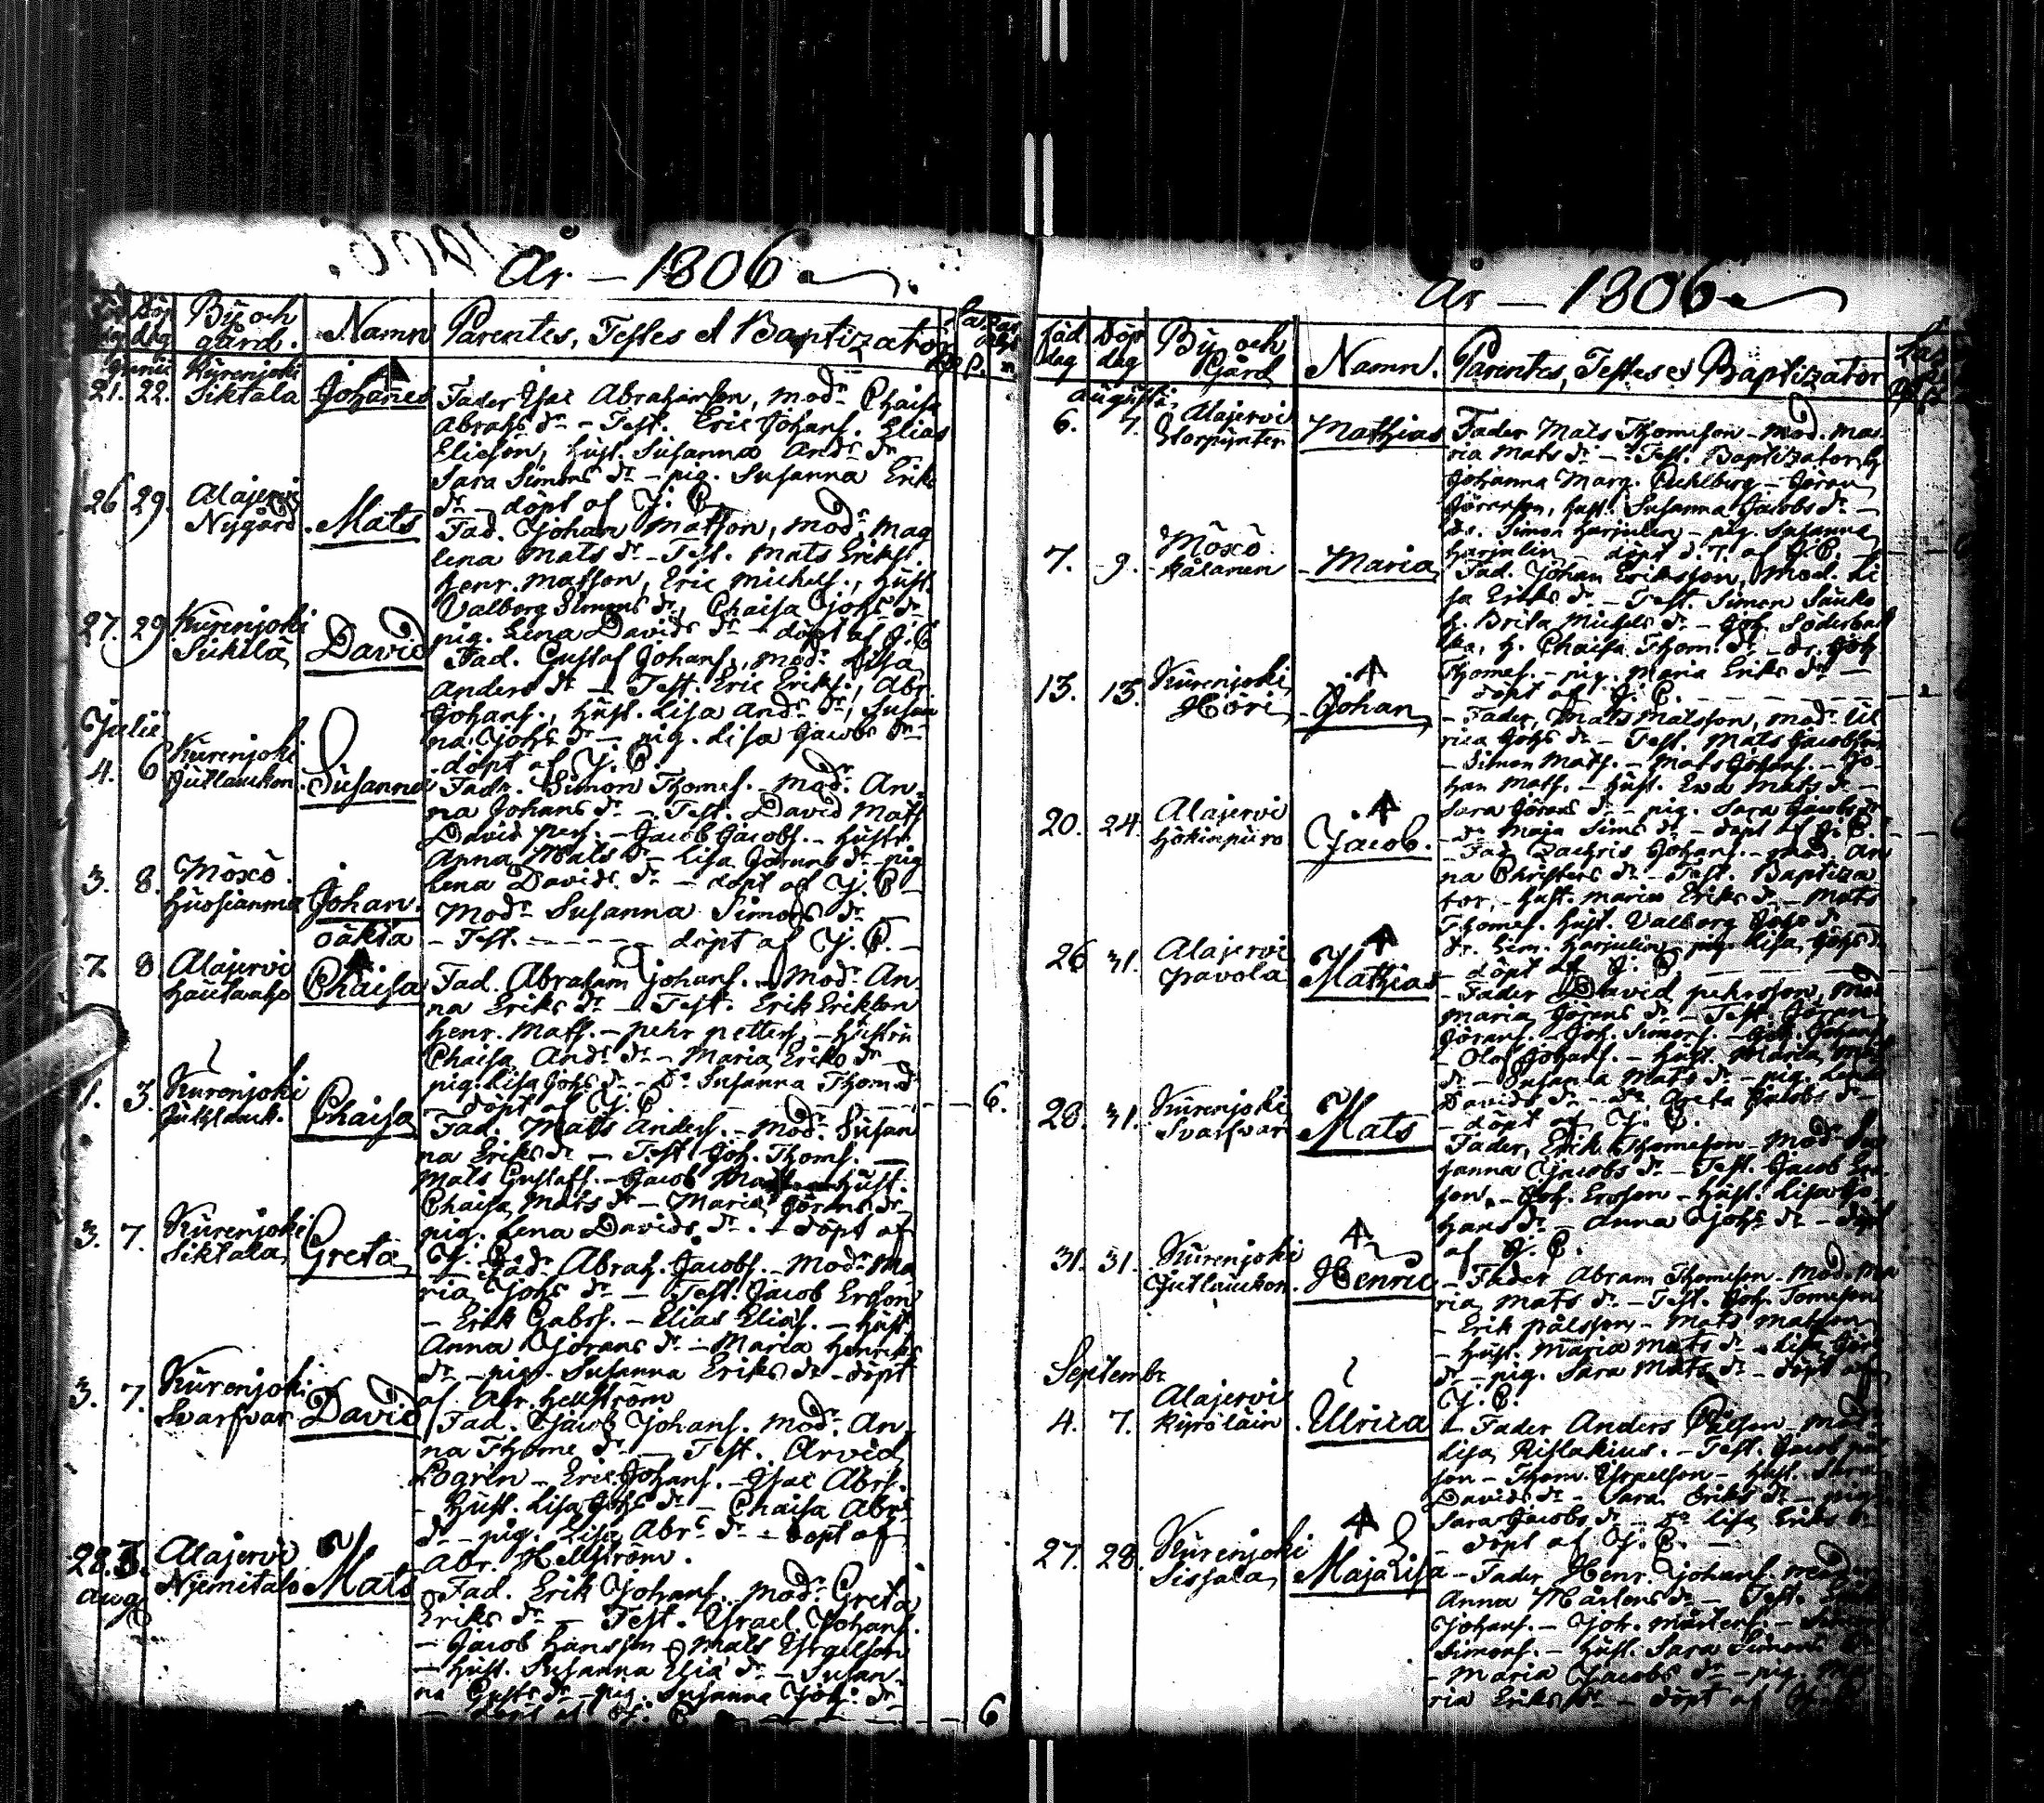 År – 1806.
dag
Döp
dag
By och
gård.
Namn
Parentes, Testes et Baptizator
Junii
21. 22.
Kurenjoki
Siktala
Johannes
Fader Isac Abrahamson, Modr Chaisa
Abrahs dr – Test. Eric Johans. Elias
Eliesön, hust. Susanna Andrs dr
Sara Simons dr – pig. Susanna Eriks
dr – döpt af J. C.
26 29.
Alajervi
Nygård
Mats
Fad. Johan Matson, Modr Mag
lena Mats dr – Test. Mats Eriks.
Henr. Matsson, Eric Michels., Hust.
Valborg Simons dr, Chaisa Johs dr
pig. Lena Davids dr – döpt af J. C
27. 29
Kurenjoki
Sukila
David
Fad. Gustaf Johans., Modr Lisa
Anders dr – Test. Eric Eriks., Abr.
Johans., Hust. Lisa Andrs dr, Susan
na Johs dr – pig. Lisa Jacobs dr
döpt af J. C.
Julii
4. 6
Kurenjoki
Jutlaukon
Susanna
Fadr. Simon Thomes. Modr. An-
na Johans dr – Test. David Mats
David Pers. – Jacob Jacobs. – Hustr.
Anna Mats dr – Lisa Görans dr – pig
Lena Davids dr – döpt af J. C –
3. 8.
Möxö
Johan
oäkta
Modr Susanna Simons dr
– Test. – – – – döpt af J. C. –
7. 8
Alajervi
Chaisa
Fad. Abraham Johans. – Modr An-
na Eriks dr – Test. Erik Erikson
Henr. Mats. – Pehr Petters. – Hustru
Chaisa Andrs dr – Maria Eriks dr –
pig. Lisa Johs dr – Dr Susanna Thoms dr
– döpt af J. C. – – – 6.
1. 3.
Kurenjoki
Chaisa
Fad. Mats Anders. – Modr. Susan
na Eriks dr – Test. Joh. Thoms. –
Mats Gustafs. – Jacob Hust.
Chaisa Mats dr – Maria Görans dr –
pig. Lena Davids dr. – döpt af
J. C.
3. 7.
Kurenjoki
Siktala
Greta
Fadr Abrah. Jacobs. – Modr Ma
ria Johs dr – Test. Jacob Ersson
– Erik Gabrs. – Elias Elias. – Hust.
Anna Görans dr – Maria Henriks
dr – pig. Susanna Eriks dr – döpt
af Abr. Hellström
3. 7.
Kurenjoki
Svarfvar
David
Fad. Jacob Johans. Modr. An
na Thome dr – Test. Arvid
Logren – Eric Johans. – Isac Abrs.
– Hust. Lisa Johs dr – Chaisa Abrs
dr – pig. Lisa Abrs dr – döpt af
Abr. Hellström.
28. 3.
Aug.
Alajervi
Njemitalo
Mats
Fad. Erik Johans. Modr. Greta
Eriks dr – Test. Israel Johans.
– Jacob Hansson – Mats Israelson
– Hust. Susanna Elia dr – Susan
na Gusts dr – pig. Susanna Johs dr
– döpt af J. C. – – – 6
År – 1806
Föd
dag
Döp
dag
By och
Gård
Namn.
Parentes, Testes et Baptizator
Augusti
6. 7.
Alajervi
Storpynten
Mathias
Fader Mats Thomeson – Mod. Ma-
ria Mats dr – Test. Baptizator, h
Johanna Marg. – Göran
Göransson, hust. Susanna Jacobs dr –
dr. Simon Harjulin – pig. Susanna
Harjulin – döpt d. 7. af J. C.
7. 9.
Möxö
Kålanen
Maria
Fad. Johan Eriksson, Mod. Li
sa Eriks dr – Test. Simon Sauko
h. Brita Michels dr – Joh. Söderbac
ka, h. Chaisa Thom. dr – dr. Joh
Thomes. – pig. Maria Eriks dr –
döpt af J. C.
13. 13.
Kurenjoki
Höri
Johan
– Fader, Mats Matsson, Modr Ul
rica Johs dr – Test. Mats Jacobson
– Simon Mats. – Mats Johans. – Jo-
han Mats. – Hust. Ewa Mats dr –
Sara Görans dr – pig. Sara Jacobs dr
– dr Maja Sims dr – döpt af J. C.
20. 24.
Alajervi
Hökinpuro
Jacob
– Fad. Zachris Johans. – mod. An
na Christers dr – Test. Baptiza
tor, – Hust. Maria Eriks dr – Mats
Thomes. Hust. Valborg Johs dr –
dr. Sim. Harjulin – pig. Lisa Johs dr
– döpt af J. C.
26 31.
Alajervi
Pavola
Mathias
– Fader David Pehrsson, Mod
Maria Görans dr – Test. Göran
Görans. – Joh. Simons. – Joh. Johans.
– Olof Johans. – Hust. Maria Mats
dr – Susanna Mats dr – pig. Lena
Davids dr – Dr Greta Jacobs dr –
– döpt af J. C.
28. 31.
Kurenjoki
Svarfvar
Mats
Fader, Erik Thomeson – Modr Su
sanna Jacobs dr – Test. Jacob Ers
son. – Joh. Ersson – Hust. Lisa Jo-
hans dr – Anna Johs dr – döpt
af J. C.
31. 31.
Kurenjoki
Jutlaukon
Henric
– Fader Abram Thomeson – Mod. Ma
ria Mats dr – Test. Joh. Tomeson
– Erik Pålsson – Mats Matsson
– Hust. Maria Mats dr – Lisa Gör.
dr – pig. Sara Mats dr – döpt af
J. C.
Septembr
4. 7.
Alajervi
Kyrolain
Ulrica
– Fader Anders Pålson – Modr
Lisa Rislakius. – Test. Jacob
son – Thom. Israelson – Hust. Sara
Davids dr – Sara Eriks dr – pig.
Sara Jacobs dr – Dr Lisa Eriks dr
– döpt af J. C. –
27. 28.
Kurenjoki
Sissala
Maja Lisa
– Fader Henr. Johans. Moder
Anna Mårtens dr – Test.
Johans. – Joh. Mårtens. –
Simons. – Hust. Sara Simons dr
– Maria Jacobs dr – pig. Ma
ria Eriks dr – döpt af